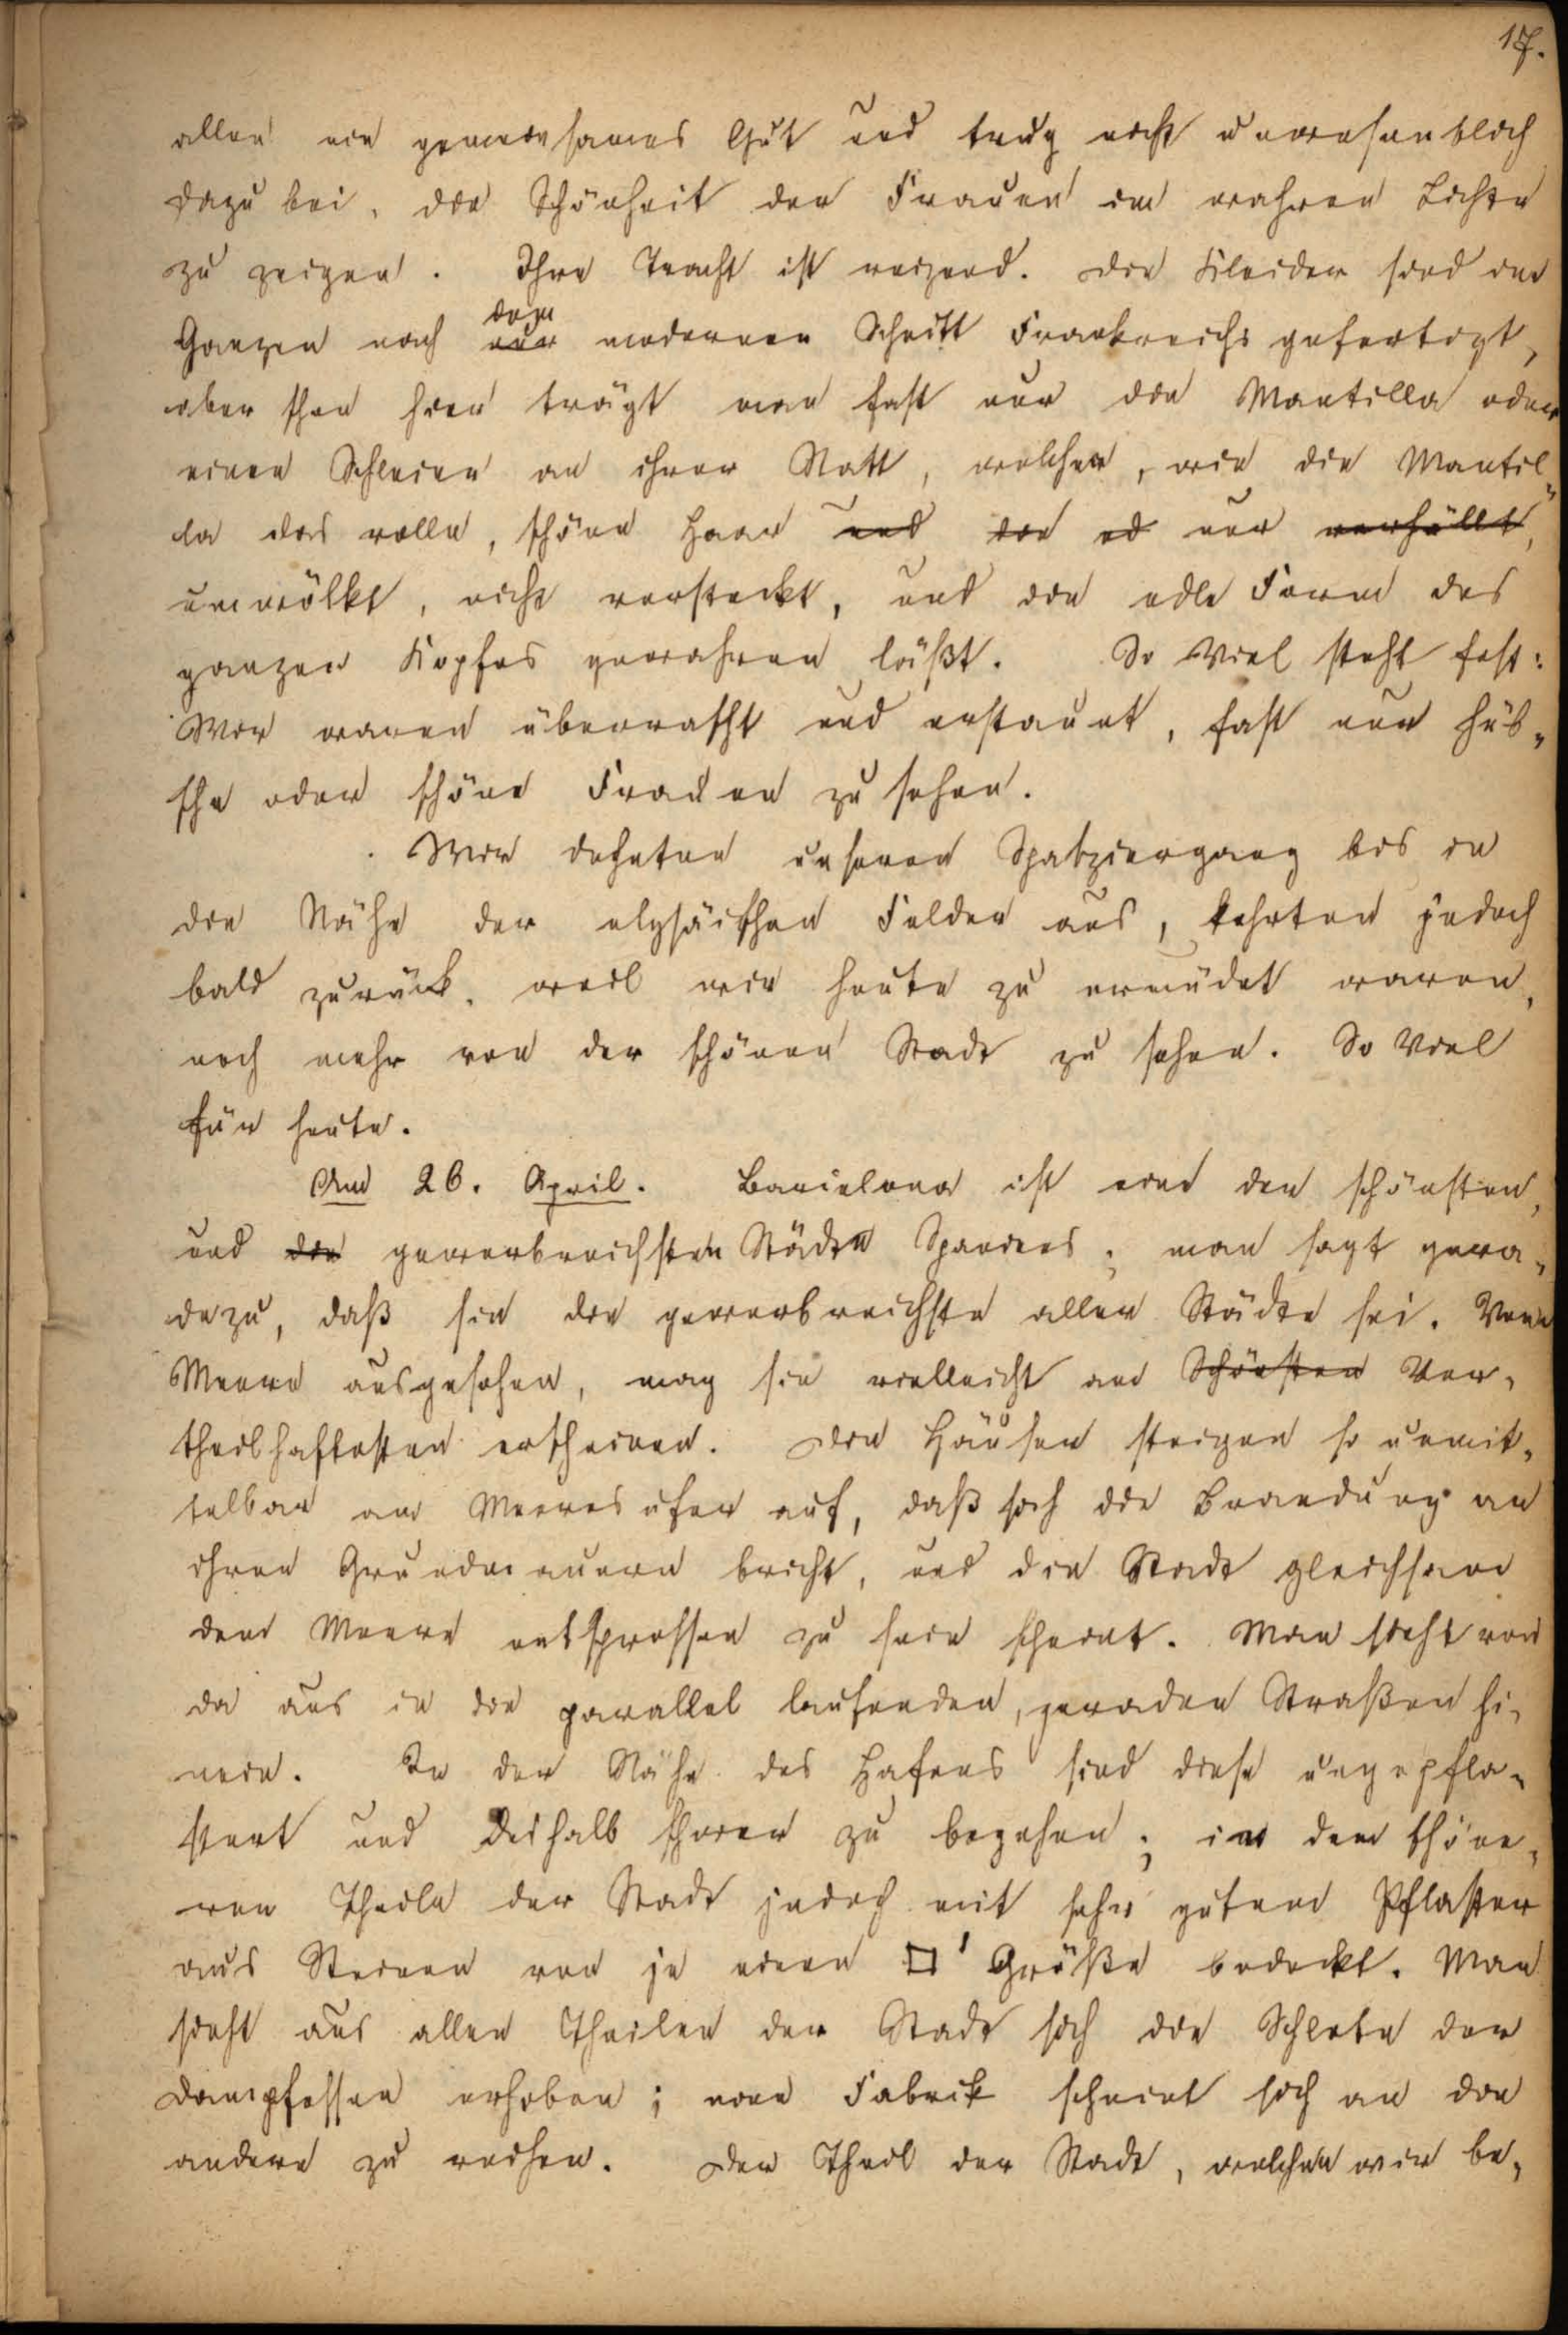 17.
allen ein gemeinsames Gut und trug nicht unwesentlich
dazu bei, die Schönheit der Frauen im wahren Lichte
zu zeigen. Ihre Tracht ist reizend. Die Kleider sind im
dem
Ganzen nach nur modernen Schnitt Frankreichs gefertigt,
aber schon hier trägt man fast nur die Mantilla oder
einen Schleier an ihrer Statt, welcher, wie die Mantil-
la das volle, schöne Haar und die ed nur verhüllt,
umwölkt, nicht versteckt, und die edle Form des
ganzen Kopfes gewahren läßt. So Viel steht fest:
Wir waren überrascht und erstaunt, fast nur hüb-
sche oder schöne Frauen zu sehen.
Wir dehnten unseren Spatziergang bis in
die Nähe der elysäischen Felder aus, kehrten jedoch
bald zurück, weil wir heute zu ermüdet waren,
noch mehr von der schönen Stadt zu sehen. So Viel
für heute.
Am 26. April. Barcelona ist eine der schönsten,
und die gewerbreichsten Städte Spaniens; man sagt gera-
dezu, daß sie die gewerbreichste aller Städte sei. Vom
Meere ausgesehen, mag sie vielleicht am Schönsten Vor-
theilhaftesten erscheinen. Die Häuser steigen so unmit-
telbar am Meeresufer auf, daß sich die Brandung an
ihren Grundmauern bricht, und die Stadt gleichsam
dem Meere entsprossen zu sein scheint. Man sieht von
da aus in die parallel laufenden, geraden Straßen hi-
nein. In der Nähe des Hafens sind diese ungepfla-
stert und deshalb schwer zu begehen; im dem schöne-
ren Theile der Stadt jedoch mit sehr gutem Pflaster
aus Steinen von je einem □' Größe bedeckt. Man
sieht aus allen Theilen der Stadt sich die Schlote der
Dampfessen erheben; eine Fabrik scheint sich an die
andere zu reihen. Der Theil der Stadt, welchen wir be-